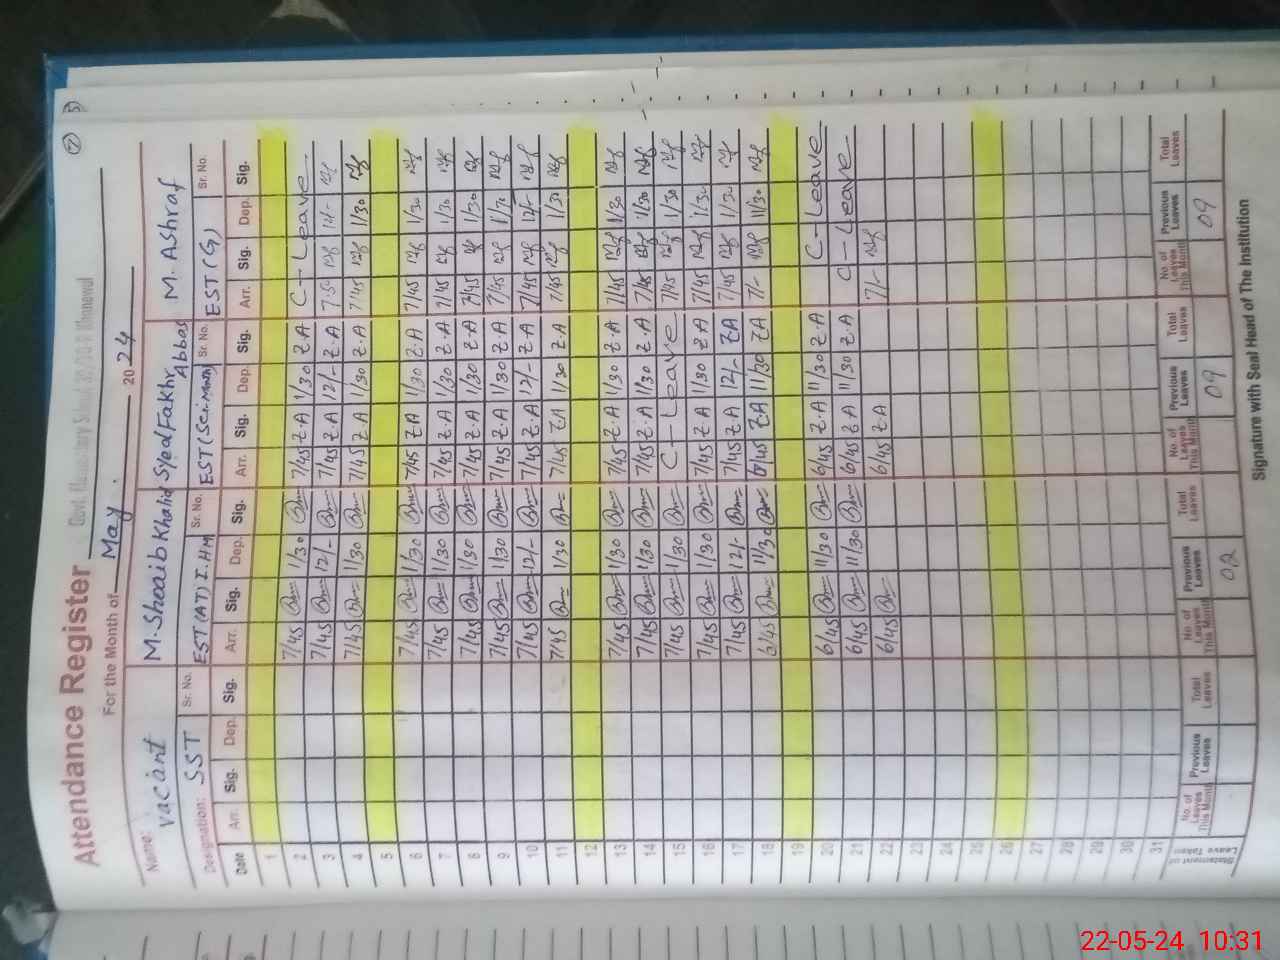 Attendance Register
Govt. Elementary School 30/10-R Khanewal
For the Month of May. 2024
Name: Vacant M. Shoaib Khalid Syed Fakhr Abbas M. Ashraf
Designation: SST Sr. No. EST(AT) I.HM Sr. No. EST(Sci.Math) Sr. No. EST(G) Sr. No.
Date Arr. Sig. Dep. Sig. Arr. Sig. Dep. Sig. Arr. Sig. Dep. Sig. Arr. Sig. Dep. Sig.
1
2 7/45 1/30 7/45 Z.A 1/30 Z.A C - Leave
3 7/45 12/- 7/45 Z.A 12/- Z.A 12/-
4 7/45 1/30 7/45 Z.A 1/30 Z.A 7/45 1/30
5
6 7/45 1/30 7/45 Z.A 1/30 Z.A 7/45 1/30
7 7/45 1/30 7/45 Z.A 1/30 Z.A 7/45 1/30
8 7/45 1/30 7/45 Z.A 1/30 Z.A 7/45 1/30
9 7/45 1/30 7/45 Z.A 1/30 Z.A 7/45
10 7/45 12/- 7/45 Z.A 12/- Z.A 7/45 12/-
11 7/45 1/30 7/45 Z.A 1/30 Z.A 7/45 1/30
12
13 7/45 1/30 7/45 Z.A 1/30 Z.A 7/45 1/30
14 7/45 1/30 7/45 Z.A 1/30 Z.A 7/45 1/30
15 7/45 1/30 C - Leave 7/45 1/30
16 7/45 1/30 7/45 Z.A 1/30 Z.A 7/45 1/30
17 7/45 12/- 7/45 Z.A 12/- Z.A 7/45 1/30
18 6/45 11/30 6/45 Z.A 11/30 Z.A 7/- 11/30
19
20 6/45 11/30 6/45 Z.A 11/30 Z.A C - Leave
21 6/45 11/30 6/45 Z.A 11/30 Z.A C - Leave
22 6/45 6/45 Z.A 7/-
23
24
25
26
27
28
29
30
31
Statement of Leave Taken No. of Leaves This Month Previous Leaves Total Leaves No. of Leaves This Month Previous Leaves Total Leaves No. of Leaves This Month Previous Leaves Total Leaves No. of Leaves This Month Previous Leaves Total Leaves
02 09 09
Signature with Seal Head of The Institution
22-05-24 10:31